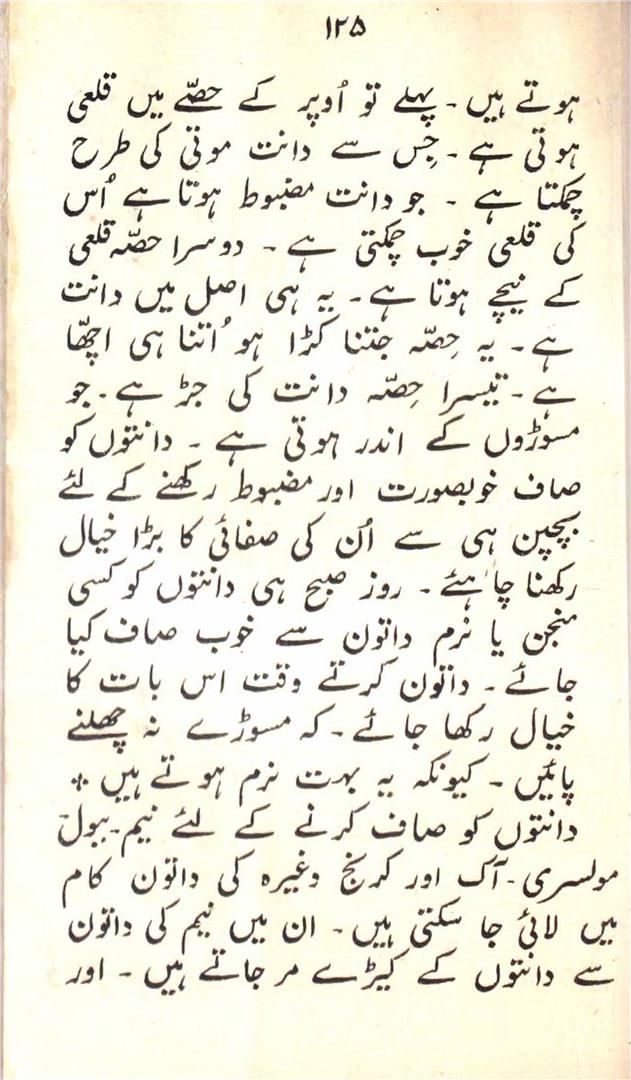 ۱۲۵
ہوتے ہیں ۔ پہلے تو اُوپر کے حصّے میں قلعی
ہوتی ہے ۔ جِس سے دانت موتی کی طرح
چمکتا ہے ۔ جو دانت مضبوط ہوتا ہے اُس
کی قلعی خوب چمکتی ہے ۔ دوسرا حصّہ قلعی
کے نیچے ہوتا ہے ۔ یہ ہی اصل میں دانت
ہے ۔ یہ حِصّہ جتنا کڑا ہو اُتنا ہی اچھّا
ہے ۔ تیسرا حِصّہ دانت کی جڑ ہے ۔ جو
مسوڑوں کے اندر ہوتی ہے ۔ دانتوں کو
صاف خوبصورت اور مضبوط رکھنے کے لئے
بچپن ہی سے اُن کی صفائی کا بڑا خیال
رکھنا چاہئے ۔ روز صبح ہی دانتوں کو کسی
منجن یا نرم داتون سے خوب صاف کیا
جائے ۔ داتون کرتے وقت اس بات کا
خیال رکھا جائے ۔ کہ مسوڑے نہ چھلنے
پائیں ۔ کیونکہ یہ بہت نرم ہوتے ہیں *
دانتوں کو صاف کرنے کے لئے نیم ۔ ببول
مولسری ۔ آک اور کرنج وغیرہ کی داتون کام
میں لائی جا سکتی ہیں ۔ ان میں نیم کی داتون
سے دانتوں کے کیڑے مر جاتے ہیں ۔ اور